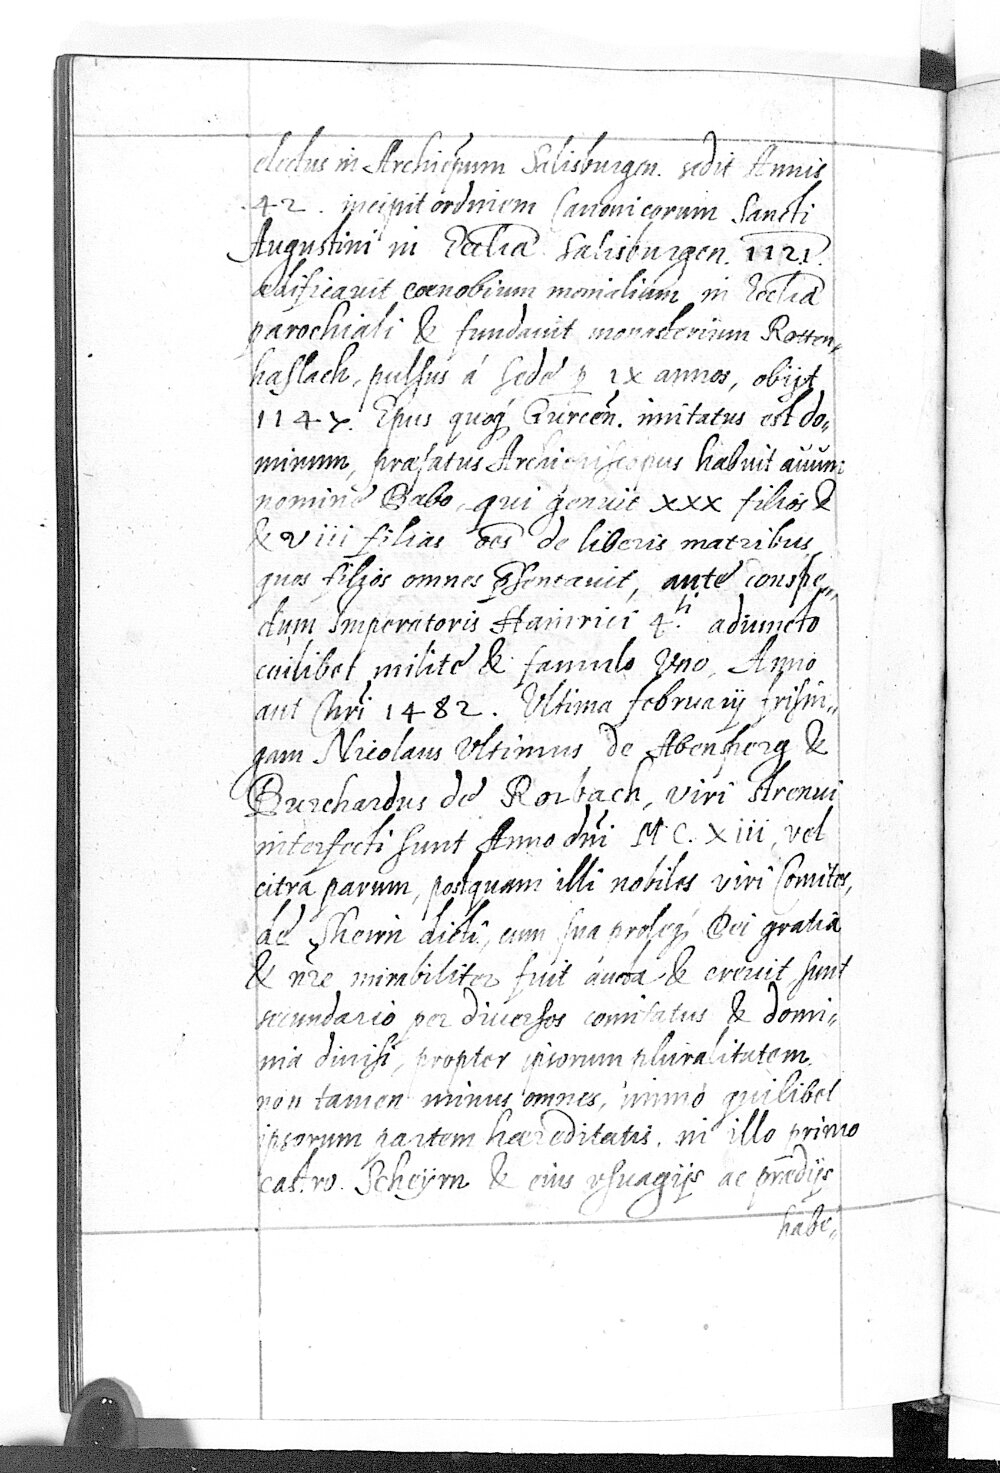 electus in Archiepũm Salisburgen. sedit Annis
42. incipit ordinem Canonicorum Sancti
Augustini in Eccłia Salisburgen. 1121.
ædificavit cœnobium monialium in Eccłia
parochiali & fundauit monasterium Rotten„
haslach, pulsus á sede p IX annos, obijt
1147. Epus quoq́ Gurceñ. imitatus est do„
minum, præfatus Archiepiscopus habuit auum
nomine Babo, qui genuit XXX filios &
& VIII filias oēs de liberis matribus,
quos filios omnes p̃sentauit, ante conspe„
ctum Imperatoris Hainrici 4.ti adiuncto
cuilibet milite & famulo Vno, Anno
aut Chri 1482. Vltima february frisin„
gam Nicolaus Vltimus de Abensperg &
Burchardus de Rorbach, viri strenui
interfecti sunt Anno dñi M.C.XIII, vel
citra parum, postquam illi nobiles viri Comites,
de Sheirn dicti, cum sua proleq́ Dei gratia
& nr̃e mirabiliter fuit aucta & creuit sunt
secundario per diuersos comitatus & domi„
nia diuisi, propter ipsorum pluralitatem
non tamen minus omnes, immo quilibet
ipsorum partem hæreditatis. in illo primo
castro. Scheyrn & eius vsuagijs ac prædijs
habe„